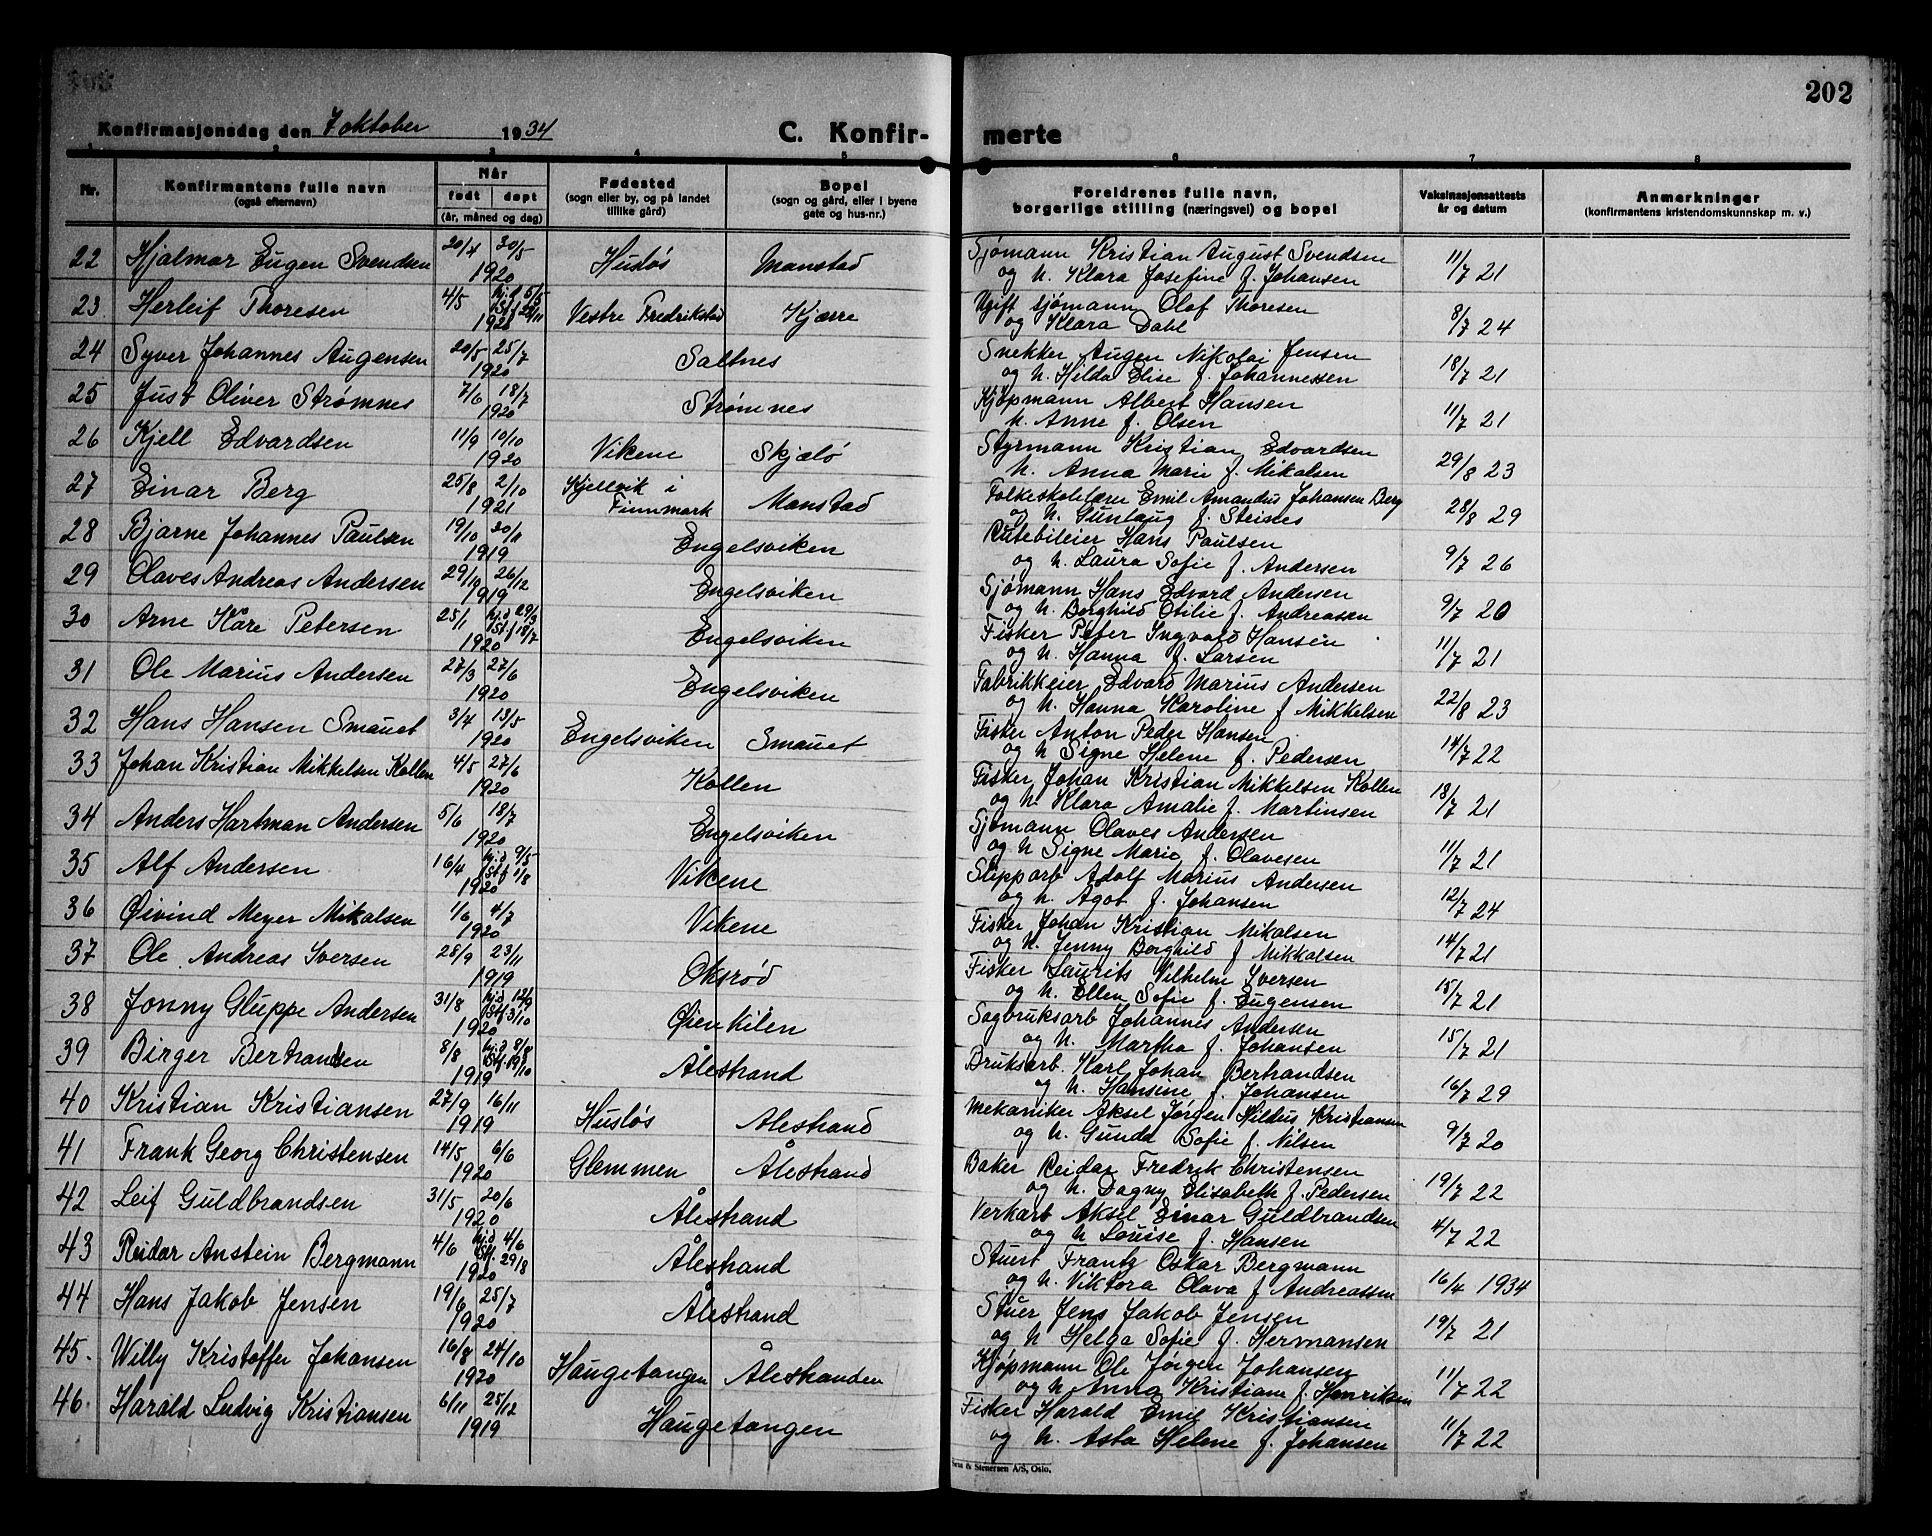 202
Konfirmasjonsdag den 7 oktober 1934
C. Konfir-merte
1 2 3 4 5 6 7 8
Nr. Konfirmantens fulle navn (også efternavn) Når født døpt (år, måned og dag) Fødested (sogn eller by, og på landet tillike gård) Bopel (sogn og gård, eller i byene gate og hus-nr.) Foreldrenes fulle navn, borgerlige stilling (næringsvei) og bopel Vaksinasjonsattests år og datum Anmerkninger (konfirmantens kristendomskunnskap m. v.)
22 Hjalmar Eugen Svendsen 20/4 30/5 1920 Husløs Manstad Sjømann Kristian August Svendsen og h. Klara Josefine f. Johansen 11/7 21
23 Herleif Thoresen 4/5 hj.d 5/5 Stf 28/11 1920 Vestre Fredrikstad Kjærre Ugift sjømann Olof Thoresen og Klara Dahl 8/7 24
24 Syver Johannes Augensen 20/5 25/7 1920 Saltnes Snekker Augen Nikolai Jensen og h. Hilda Elise f. Johannessen 18/7 21
25 Just Oliver Strømnes 7/6 18/7 1920 Strømnes Kjøpmann Albert Hansen h. Anne f. Olsen 11/7 21
26 Kjell Edvardsen 11/9 10/10 1920 Vikene Skjælø Styrmann Kristian Edvardsen h. Anna Marie f. Mikalsen 29/8 23
27 Einar Berg 25/8 2/10 1921 Kjellvik i Finnmark Manstad Folkeskolelærer Emil Amandus Johansen Berg og h. Gunlaug f. Steines 28/8 29
28 Bjarne Johannes Paulsen 19/10 20/11 1919 Engelsviken Rutebileier Hans Paulsen og h. Laura Sofie f. Andersen 9/7 26
29 Olaves Andreas Andersen 29/10 26/12 1919 Engelsviken Sjømann Hans Edvard Andersen og h. Borghild Otilie f. Andreasen 9/7 20
30 Arne Kåre Petersen 25/1 hj.d 29/3 Stf 18/7 1920 Engelsviken Fisker Peter Ingvald Hansen og h. Hanna f. Larsen 11/7 21
31 Ole Marius Andersen 27/3 27/6 1920 Engelsviken Fabrikkeier Edvard Marius Andersen og h. Hanna Karoline f Mikkelsen 22/8 23
32 Hans Hansen Smauet 3/4 13/5 1920 Engelsviken Smauet Fisker Anton Peder Hansen og h Signe Helene f. Pedersen 14/7 22
33 Johan Kristian Mikkelsen Kollen 4/5 27/6 1920 Kollen Fisker Johan Kristian Mikkelsen Kollen og h. Klara Amalie f. Martinsen 18/7 21
34 Anders Hartman Andersen 5/6 18/7 1920 Engelsviken Sjømann Olaves Andersen og h Signe Marie f. Olavesen 11/7 21
35 Alf Andersen 16/4 hj.d 9/5 Stf 1/8 1920 Vikene Slipparb Adolf Marius Andersen og h. Agot f. Johansen 12/7 24
36 Øivind Meyer Mikalsen 1/6 4/7 1920 Vikene Fisker Johan Kristian Mikalsen og h. Jenny Borghild f Mikkalsen 14/7 21
37 Ole Andreas Iversen 28/9 23/11 1919 Oksrød Fisker Laurits Vilhelm Iversen og h. Ellen Sofie f. Eugensen 15/7 21
38 Jonny Gluppe Andersen 31/8 hj.d 12/9 Stf 3/10 1920 Øienkilen Sagbruksarb Johannes Andersen og h. Martha f. Johansen 15/7 21
39 Birger Bertrandsen 8/8 hj.d 8/8 Stf 19/10 1919 Ålestrand Bruksarb. Karl Johan Bertrandsen og h. Hansine f. Johansen 16/7 29
40 Kristian Kristiansen 27/9 16/11 1919 Husløs Ålestrand Mekaniker Aksel Jørgen Hildus Kristiansen og h. Gunda Sofie f. Nilsen 9/7 20
41 Frank Georg Christensen 14/5 6/6 1920 Glemmen Ålestrand Baker Reidar Fredrik Christensen og h. Dagny Elisabeth f. Pedersen 19/7 22
42 Leif Guldbrandsen 31/5 20/6 1920 Ålestrand Verkarb Aksel Einar Guldbrandsen og h Louise f. Hansen 4/7 22
43 Reidar Anstein Bergmann 4/6 hj.d 4/6 Stf. 29/8 1920 Ålestrand Stuert Frantz Oskar Bergmann og h. Viktora Olava f Andreassen 16/4 1934
44 Hans Jakob Jensen 19/6 25/7 1920 Ålestrand Stuer Jens Jakob Jensen og h Helga Sofie f. Hermansen 19/7 21
45. Willy Kristoffer Johansen 16/8 24/10 1920 Haugetangen Ålestranden Kjøpmann Ole Jørgen Johansen og h Anna Kristiane f. Henriksen 11/7 22
46. Harald Ludvig Kristiansen 6/11 25/12 1919 Haugetangen Fisker Harald Emil Kristiansen og h. Asta Helene f. Johansen 11/7 22
& Stenersen A/S, Oslo.